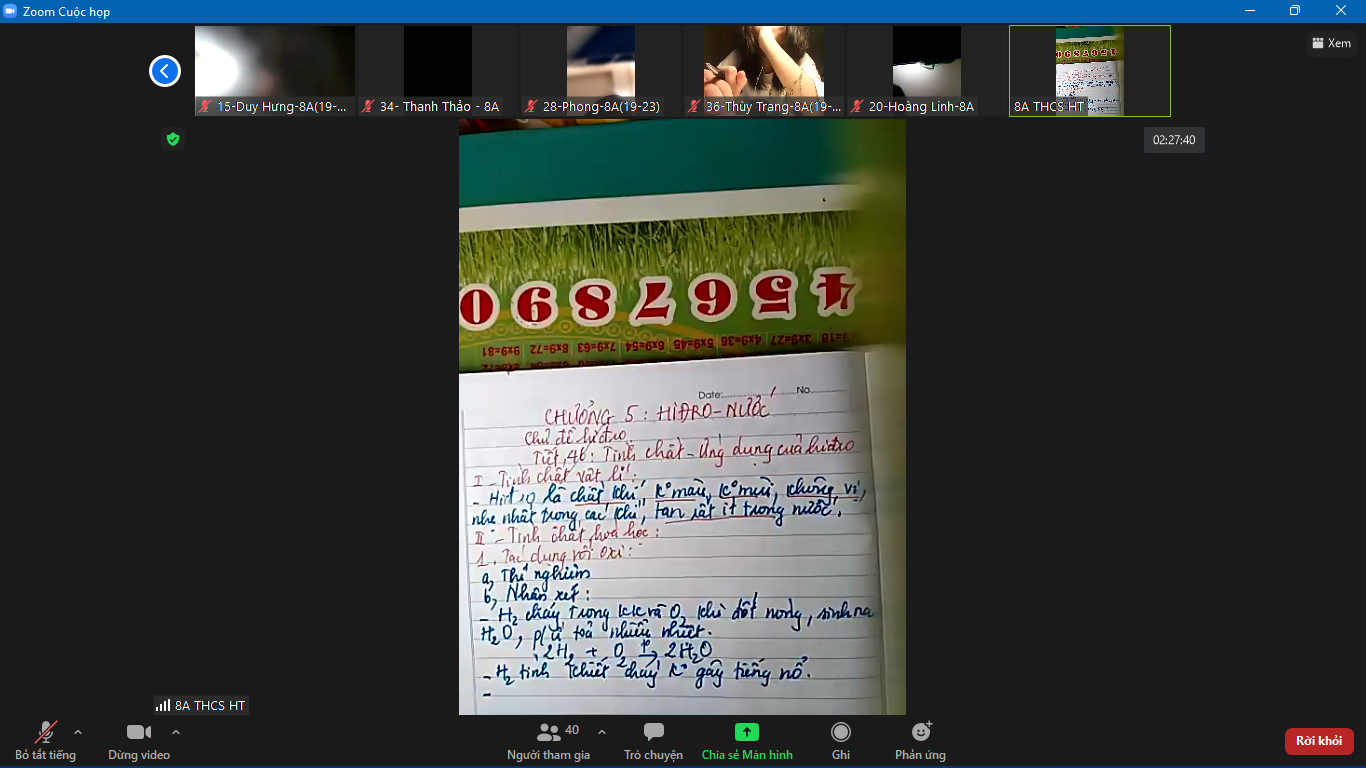 Zoom Cuộc họp
Xem
15-Duy Hưng-8A(19-...
34- Thanh Thảo - 8A
28-Phong-8A(19-23)
36-Thùy Trang-8A(19-...
20-Hoàng Linh-8A
8A THCS HT
02:27:40
4 5 6 7 8 9 0
3x9=27 4x9=36 5x9=45 6x9=54 7x9=63 8x9=72 9x9=81
Date: No
CHƯƠNG 5 : HIĐRO - NƯỚC
Chủ đề hiđro
Tiết 46 : Tính chất - Ứng dụng của hiđro
I - Tính chất vật lí :
- Hiđro là chất khí, k° màu, k° mùi, không vị,
nhẹ nhất trong các khí, tan rất ít trong nước.
II - Tính chất hoá học :
1. Tác dụng với oxi :
a, Thí nghiệm
b, Nhận xét :
- H2 cháy trong kk và O2 khi đốt nóng, sinh ra
H2O, p/ứ toả nhiều nhiệt.
2H2 + O2 t°→ 2H2O
- H2 tinh khiết cháy k° gây tiếng nổ.
-
8A THCS HT
Bỏ tắt tiếng
Dừng video
40
Người tham gia
Trò chuyện
Chia sẻ Màn hình
Ghi
Phản ứng
Rời khỏi